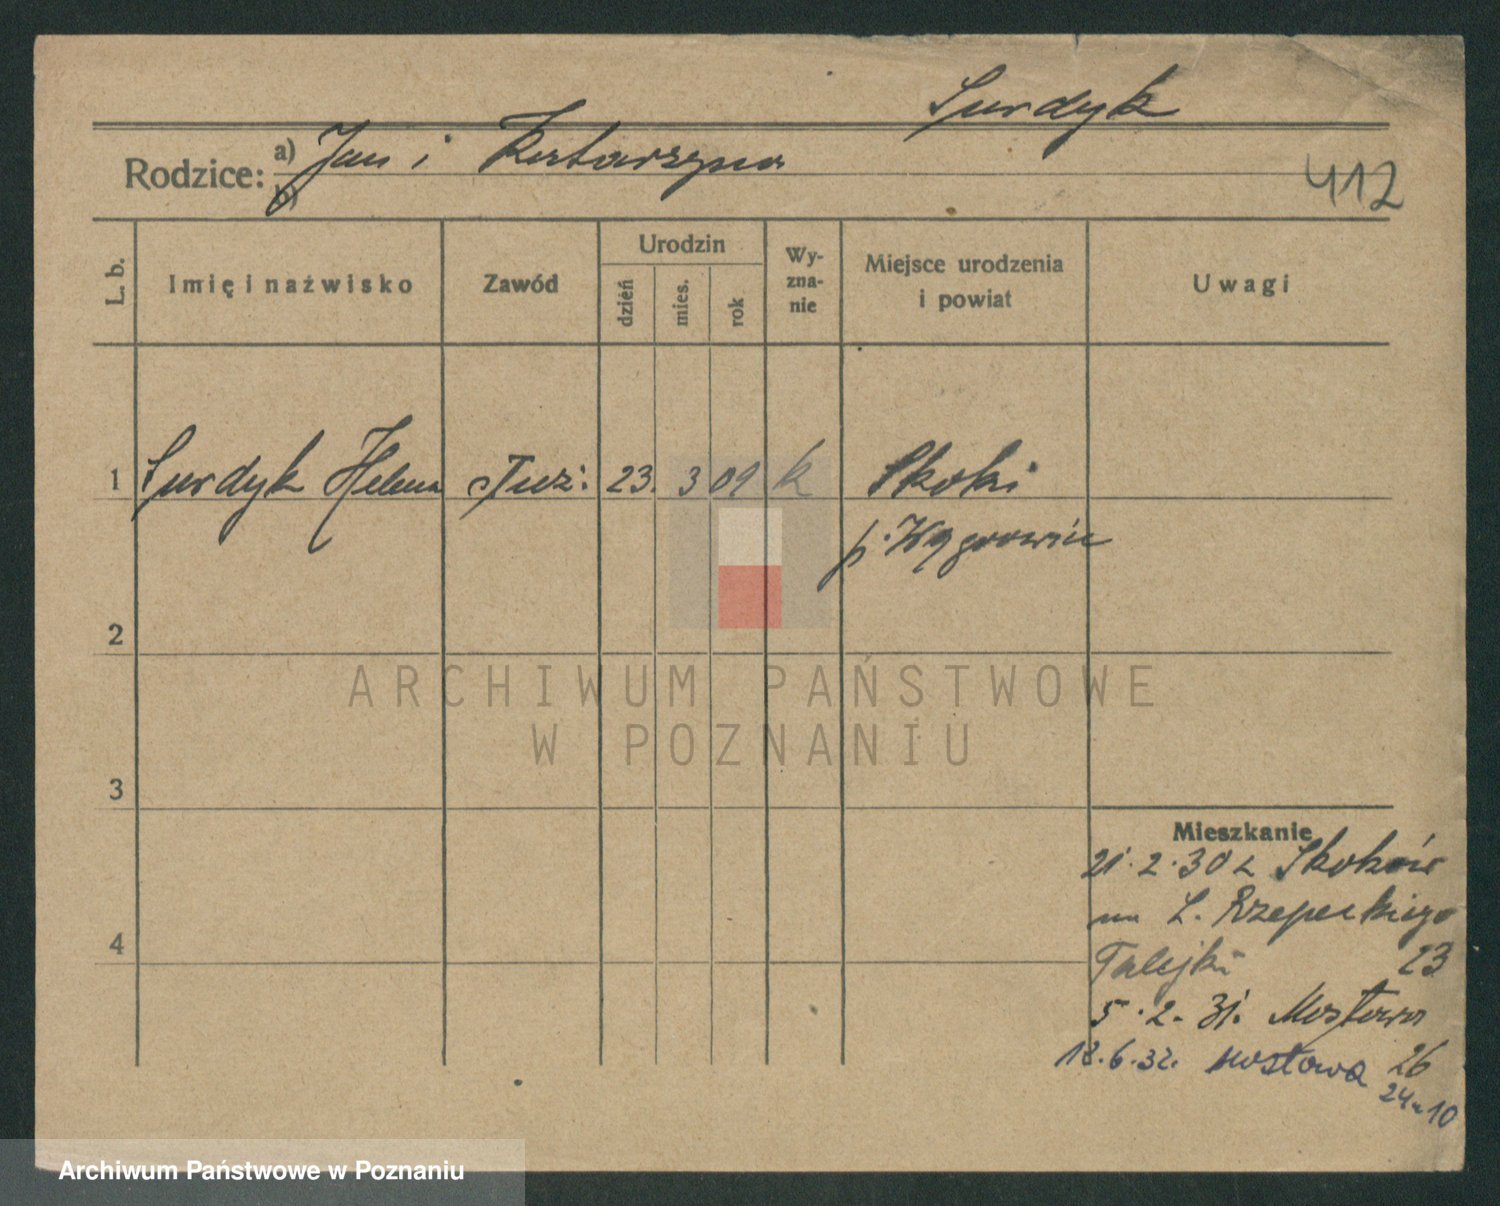 Surdyk
Rodzice: a) Jan i Katarzyna
b)
412
L. b.
Imię i nazwisko
Zawód
Urodzin
dzień
mies.
rok
Wy-
zna-
nie
Miejsce urodzenia
i powiat
Uwagi
1 Surdyk Helena służ: 23. 3 09 k Skoki
p. Wągrowiec
2
3
4
Mieszkanie
21.2.30 z Skoków
na L. Rzepeckiego
23
5.2.31. Mostowa
26
18.6.32. Mostowa
24 10
ARCHIWUM PAŃSTWOWE
W POZNANIU
Archiwum Państwowe w Poznaniu